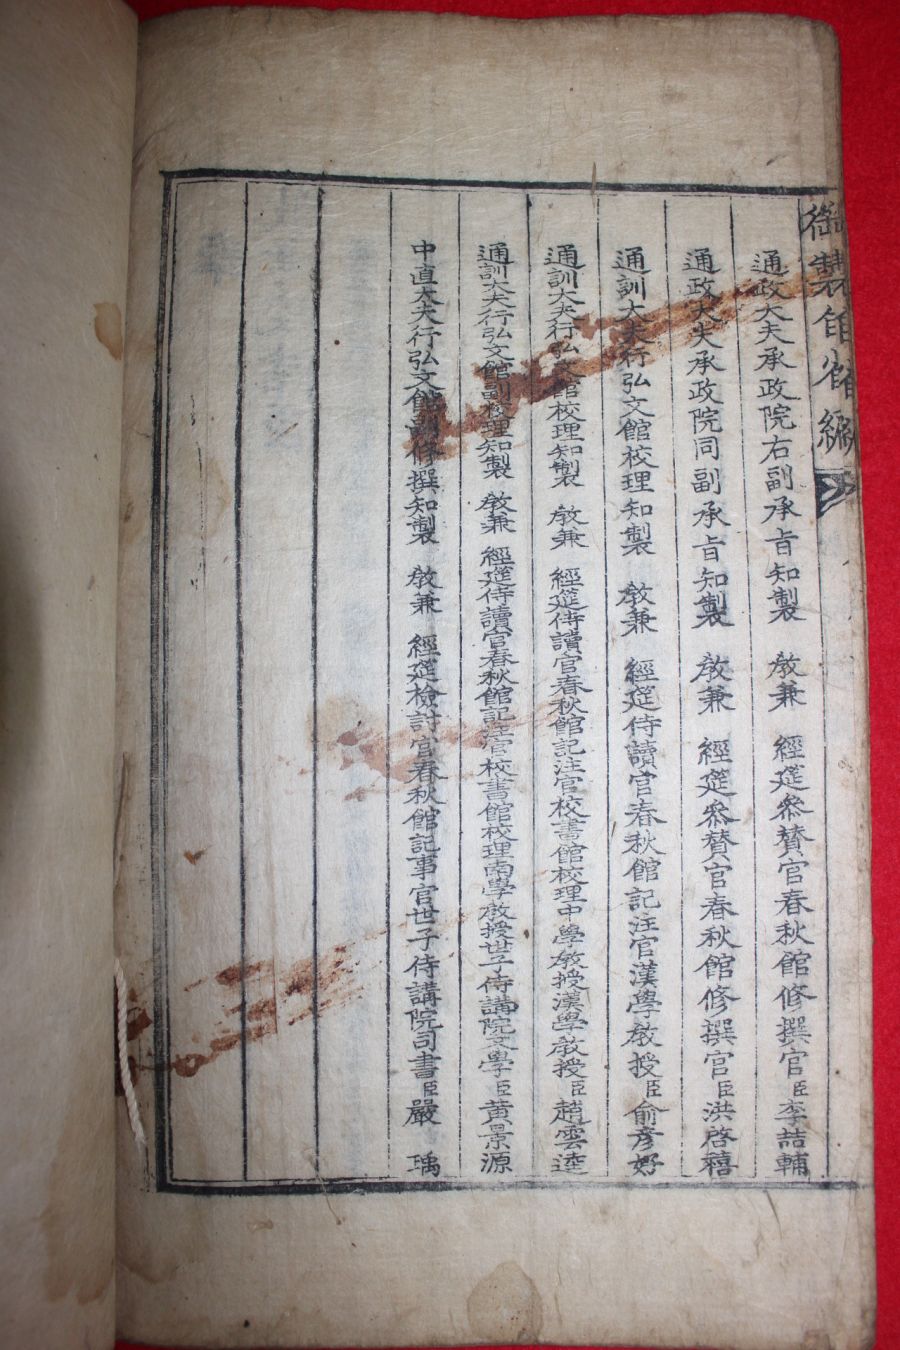 御製自省編
通政大夫承政院右副承旨知製 敎兼 經筵參贊官春秋館修撰官臣李喆輔
通政大夫承政院同副承旨知製 敎兼 經筵參贊官春秋館修撰官臣洪啓禧
通訓大夫行弘文館校理知製 敎兼 經筵侍讀官春秋館記注官漢學敎授臣俞彦好
通訓大夫行弘文館校理知製 敎兼 經筵侍讀官春秋館記注官校書館校理中學敎授漢學敎授臣趙雲逵
通訓大夫行弘文館副校理知製 敎兼 經筵侍讀官春秋館記注官校書館校理南學敎授世子侍講院文學臣黃景源
中直大夫行弘文館副修撰知製 敎兼 經筵檢討官春秋館記事官世子侍講院司書臣嚴 瑀